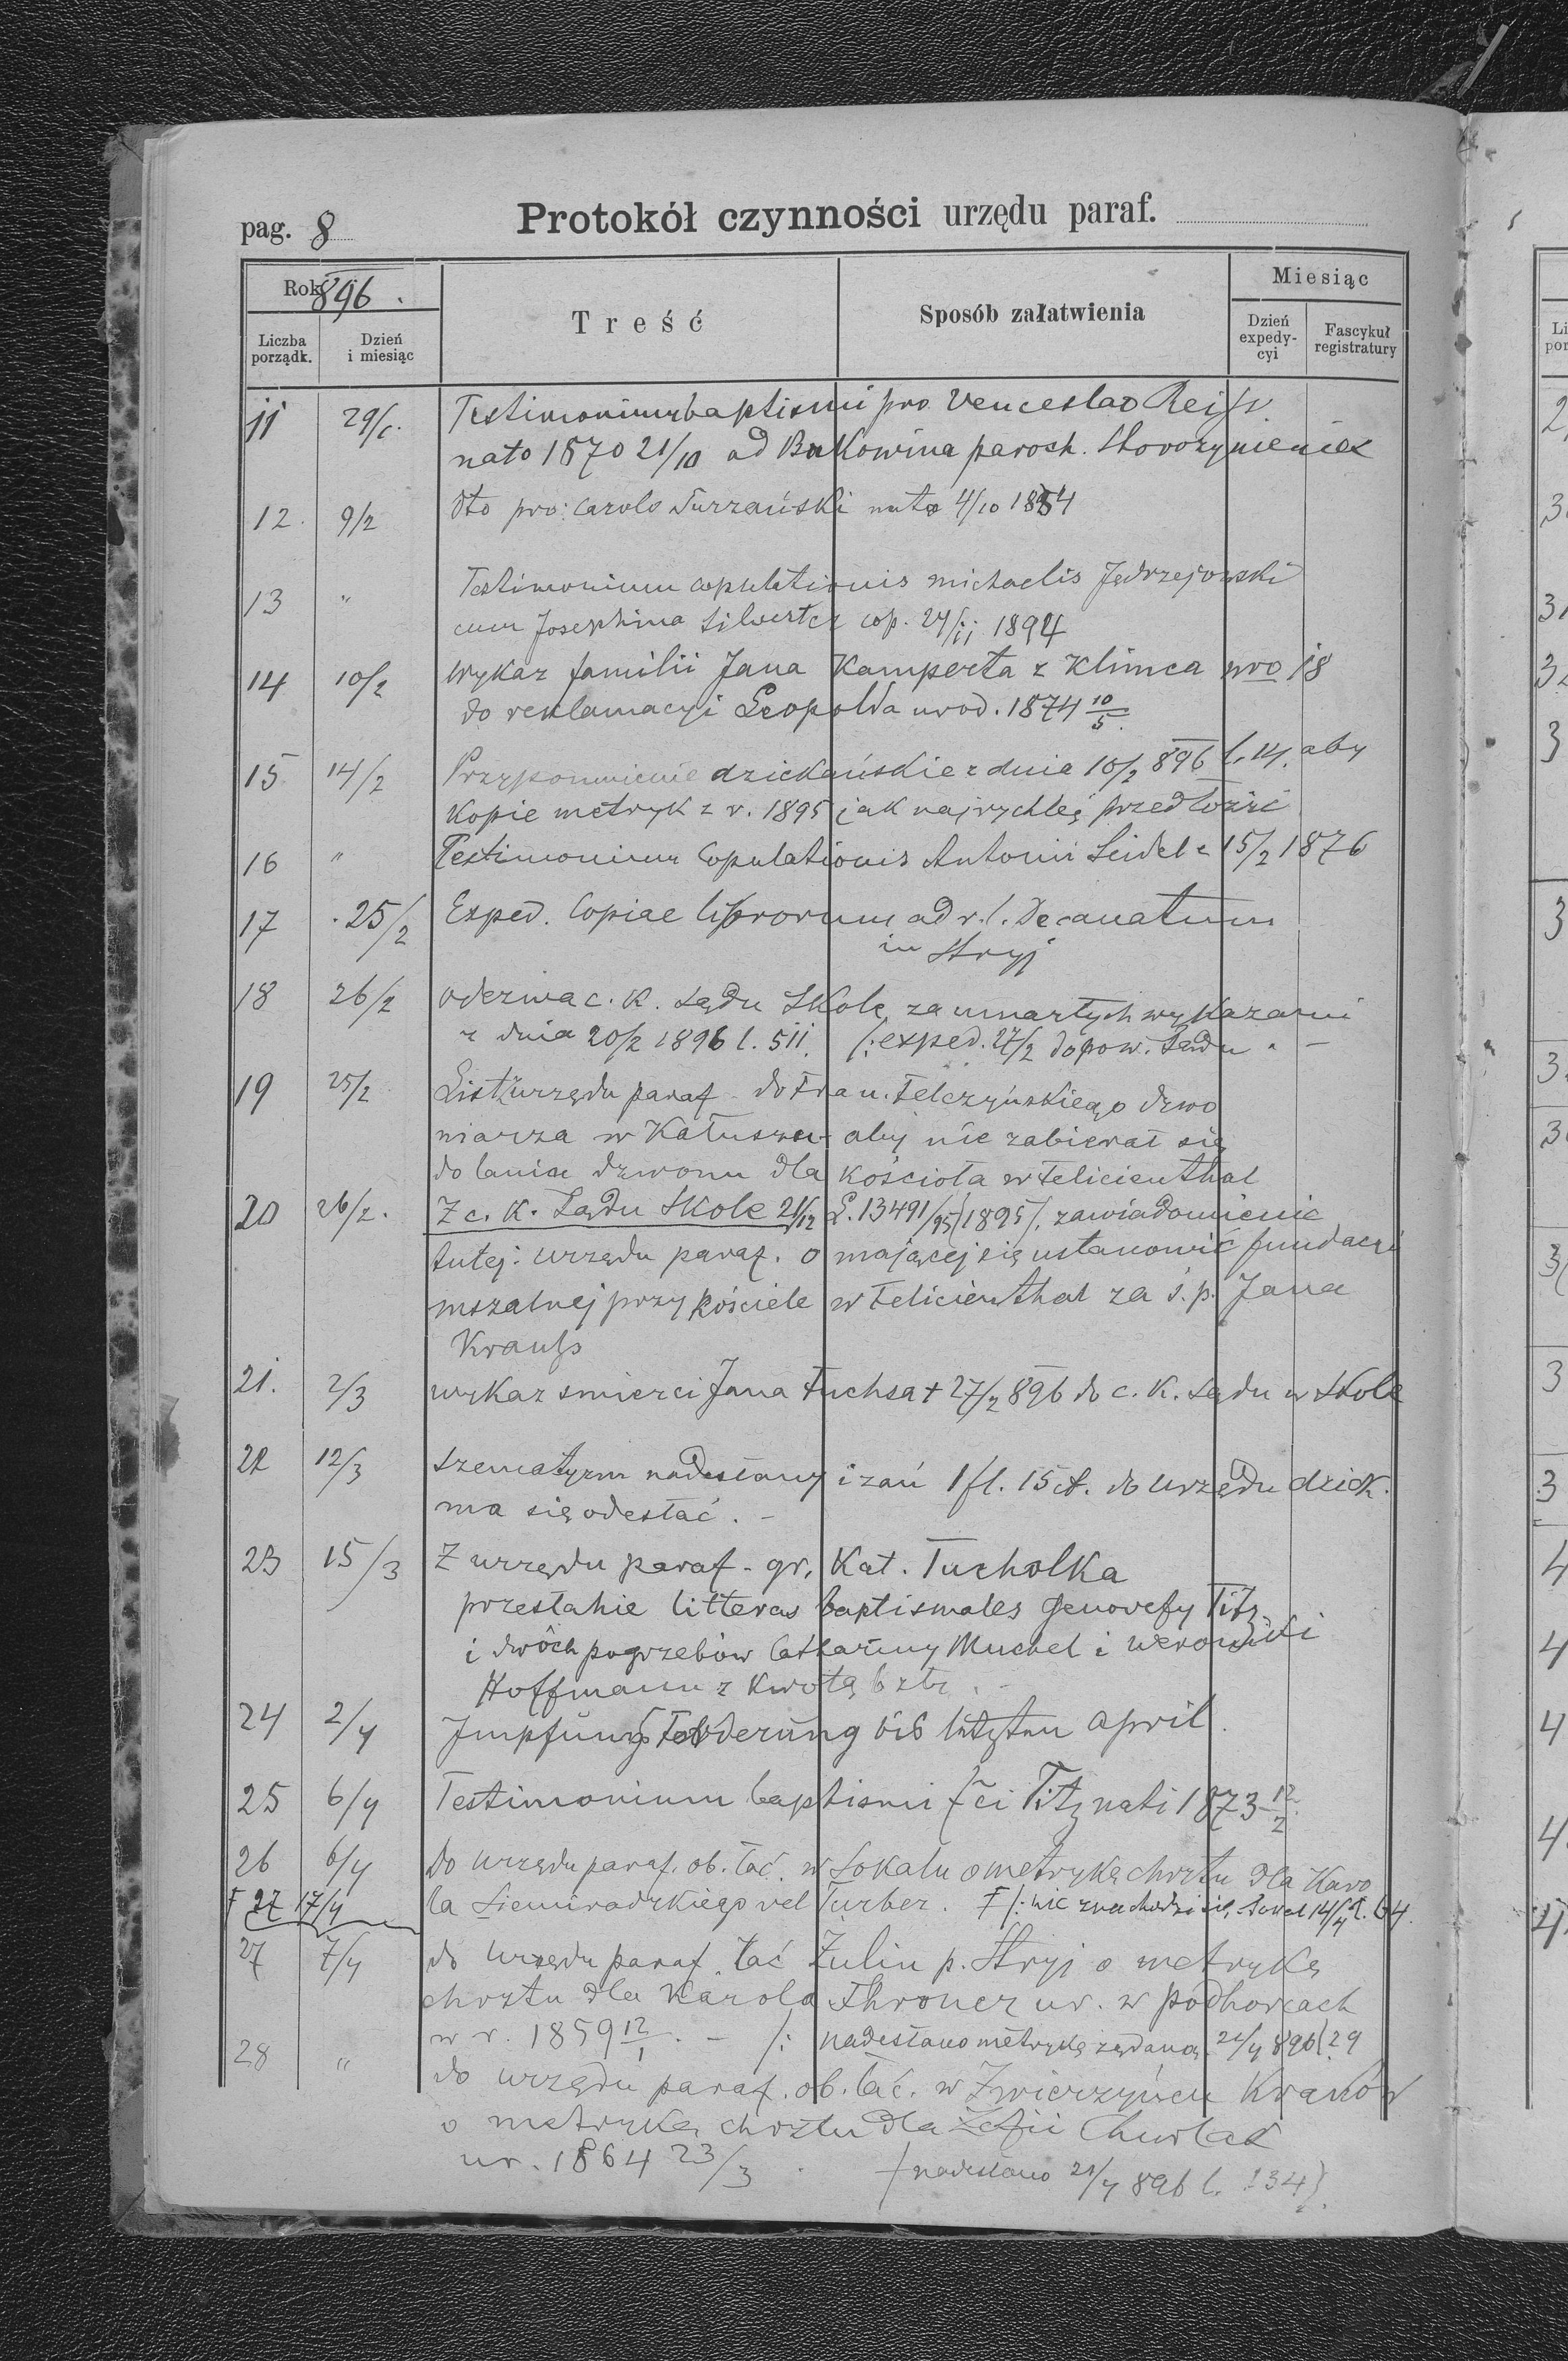 pag. 8 Protokół czynności urzędu paraf.
Rok 896.
Miesiąc
Treść
Sposób załatwienia
Liczba porządk.
Dzień i miesiąc
Dzień expedycyi
Fascykuł registratury
11 29/1. Testimonium baptismi pro Venceslao
nato 1870 21/10 ad Bukowina paroch.
12. 9/2 dto pro: Carolo Turzański nato 4/10 1854
13 " Testimonium copulationis michaelis Jędrzejowski
cum Josephina Silvester cop. 24/11 1894
14 10/2 Wykaz familii Jana Kamperta z Klimca nro 18
do reklamacyi Leopolda urod. 1874 10/5.
15 14/2 Przypomnienie dziekańskie z dnia 10/2 896 l. 14. aby
Kopie metryk z r. 1895 jak najrychlej przedłożić
16 " Testimonium Copulationis Antonii Seidel 15/2 1876
17 25/2 Exped. Copiae librorum ad r. l. Decanatum
in Stryj
18 26/2 odezwa c. K. Sądu Skole za umarłych wykazami
z dnia 20/2 1896 l. 511. /: exped. 27/2 do pow. Sądu . –
19 25/2 List urzędu paraf. do Fran. Felczyńskiego dzwo
niarza w Kałuszu aby nie zabierał się
do lania dzwonu dla kościoła w Felicienthal
20 26/2. Z c. K. Sądu Skole 21/12 L. 13491/95 /1895/. zawiadomienie
tutej. urzędu paraf. o mającej się ustanowić fundacyi
mszalnej przy kościele w Felicienthal za ś. p. Jana
Krauss
21. 2/3 wykaz smierci Jana Fuchsa + 27/2 896 do c. K. Sądu w Skole
22 12/3 Szematyzm nadesłany i zań 1 fl. 15 ct. do Urzędu dziek.
ma się odesłać. –
23 15/3 Z urzędu paraf. gr. Kat. Tucholka
przesłanie litteras baptismales Genovefy Titz
i dwóch pogrzebów Cathariny Muchel i Weroniki
Hoffmann z kwotą 6 złr. –
24 2/4 Impfung Forderung bis letzten April.
25 6/4 Testimonium baptismi Titz nati 1873 12/2.
26 6/4 do Urzędu paraf. ob. łać. w Sokalu o metrykę chrztu dla Karo
F 27 17/4 la Siemiradzkiego vel Turber. F /: nie znachodzi się, Sokal 14/4 l. 64.
27 7/4 do Urzędu paraf. łać Żulin p. Stryj o metrykę
chrztu dla Karola Throner ur. w Podhorcach
w r. 1859 12/1. – /: nadesłano metrykę żądaną 21/4 896 l 29
28 " do urzędu paraf. ob. łać. w Zwierzyńcu Kraków
o metrykę chrztu dla Zofii
ur. 1864 23/3. /nadesłano 21/4 896 l. 134/.